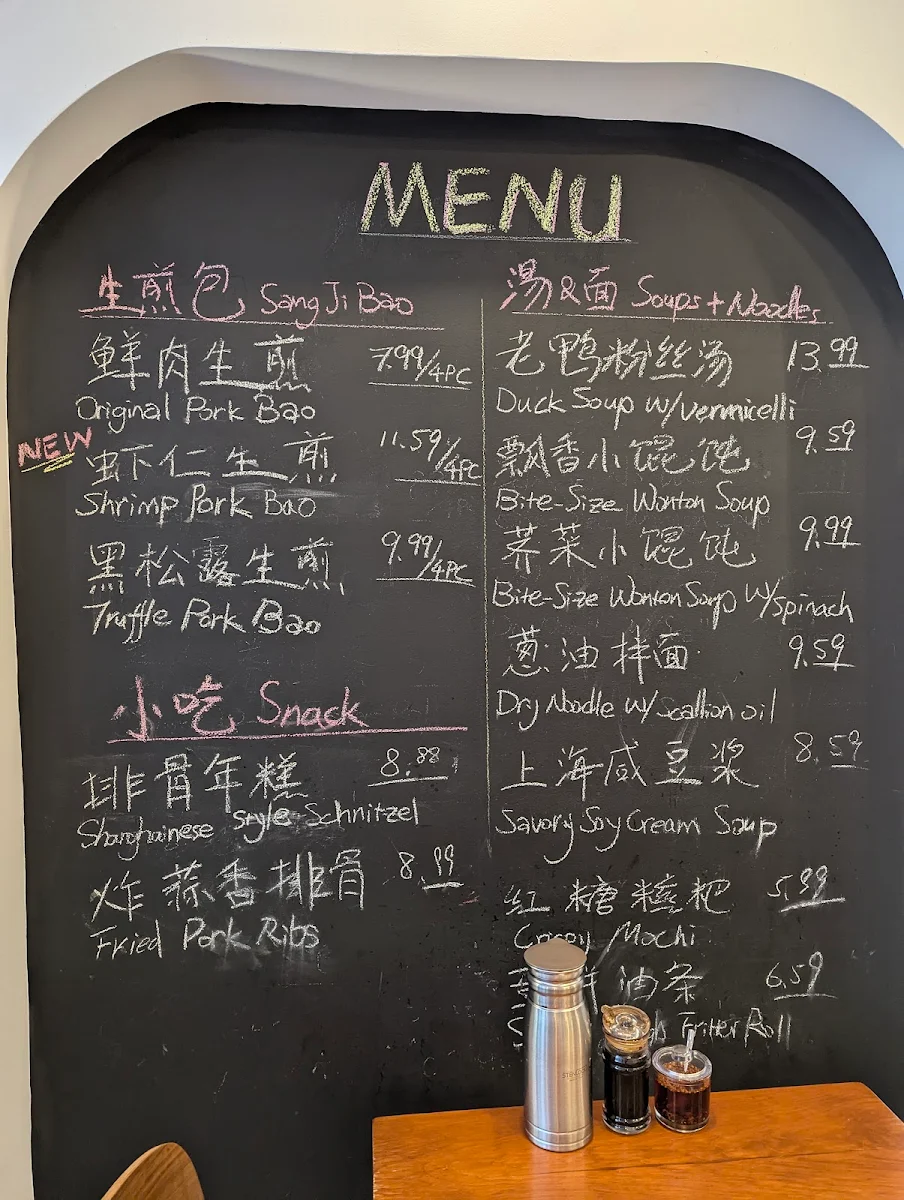 MENU
生煎包 Sang Ji Bao
鲜肉生煎 7.99/4PC
Original Pork Bao
NEW
虾仁生煎 11.59/4PC
Shrimp Pork Bao
黑松露生煎 9.99/4PC
Truffle Pork Bao
小吃 Snack
排骨年糕 8.88
Shanghainese Style Schnitzel
炸蒜香排骨 8.99
Fried Pork Ribs
汤&面 Soups + Noodles
老鸭粉丝汤 13.99
Duck Soup w/vermicelli
飘香小馄饨 9.59
Bite-Size Wonton Soup
荠菜小馄饨 9.99
Bite-Size Wonton Soup w/spinach
葱油拌面 9.59
Dry Noodle w/ Scallion oil
上海咸豆浆 8.59
Savory Soy Cream Soup
红糖糍粑 5.99
Mochi
油条 6.59
Fritter Roll